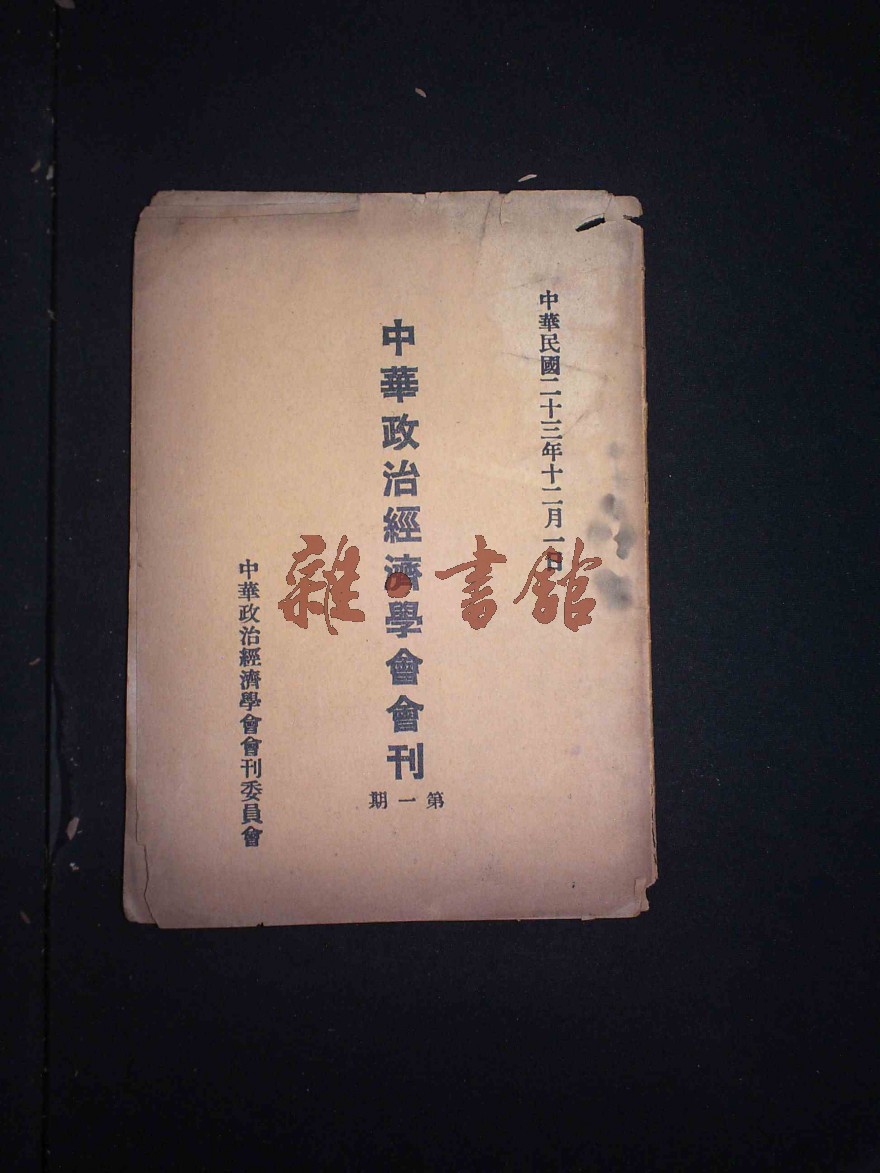 中華民國二十三年十二月一日
中華政治經濟學會會刊
第一期
中華政治經濟學會會刊委員會
雜·書館